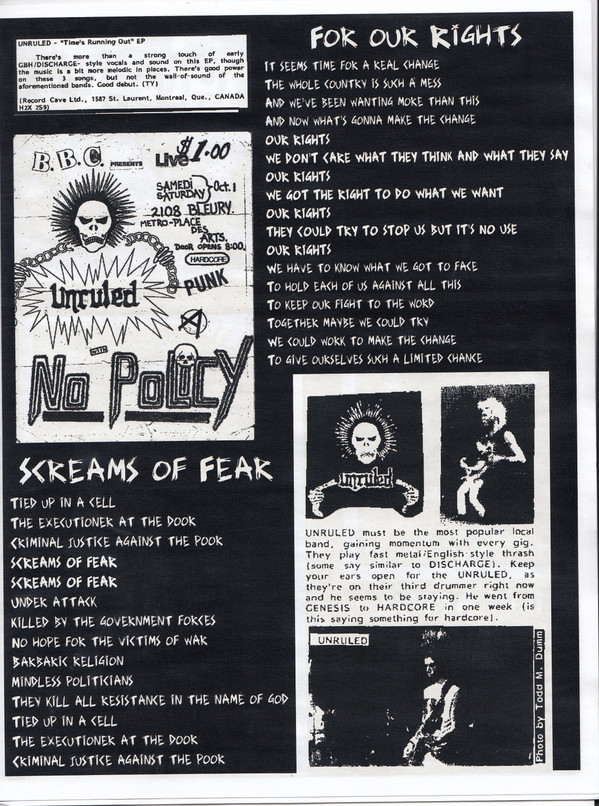 UNRULED - "Time's Running Out" EP
There's more than a strong touch of early
GBH/DISCHARGE- style vocals and sound on this EP, though
the music is a bit more melodic in places. There's good power
on these 3 songs, but not the wall-of-sound of the
aforementioned bands. Good debut. (TY)
(Record Cave Ltd., 1587 St. Laurent, Montreal, Que., CANADA
H2X 2S9)
B.B.C. PRESENTS LIVE $1.00
SAMEDI
SATURDAY Oct. 1
2108 BLEURY.
METRO-PLACE
DES
ARTS.
DOOR OPENS 8:00.
HARDCORE
PUNK
unruled
No Policy
SCREAMS OF FEAR
TIED UP IN A CELL
THE EXECUTIONER AT THE DOOR
CRIMINAL JUSTICE AGAINST THE POOR
SCREAMS OF FEAR
SCREAMS OF FEAR
UNDER ATTACK
KILLED BY THE GOVERNMENT FORCES
NO HOPE FOR THE VICTIMS OF WAR
BARBARIC RELIGION
MINDLESS POLITICIANS
THEY KILL ALL RESISTANCE IN THE NAME OF GOD
TIED UP IN A CELL
THE EXECUTIONER AT THE DOOR
CRIMINAL JUSTICE AGAINST THE POOR
FOR OUR RIGHTS
IT SEEMS TIME FOR A REAL CHANGE
THE WHOLE COUNTRY IS SUCH A MESS
AND WE'VE BEEN WANTING MORE THAN THIS
AND NOW WHAT'S GONNA MAKE THE CHANGE
OUR RIGHTS
WE DON'T CARE WHAT THEY THINK AND WHAT THEY SAY
OUR RIGHTS
WE GOT THE RIGHT TO DO WHAT WE WANT
OUR RIGHTS
THEY COULD TRY TO STOP US BUT IT'S NO USE
OUR RIGHTS
WE HAVE TO KNOW WHAT WE GOT TO FACE
TO HOLD EACH OF US AGAINST ALL THIS
TO KEEP OUR FIGHT TO THE WORD
TOGETHER MAYBE WE COULD TRY
WE COULD WORK TO MAKE THE CHANGE
TO GIVE OURSELVES SUCH A LIMITED CHANCE
unruled
UNRULED must be the most popular local
band, gaining momentum with every gig.
They play fast metal/English style thrash
(some say similar to DISCHARGE). Keep
your ears open for the UNRULED, as
they're on their third drummer right now
and he seems to be staying. He went from
GENESIS to HARDCORE in one week (is
this saying something for hardcore).
UNRULED
Photo by Todd M. Dumm